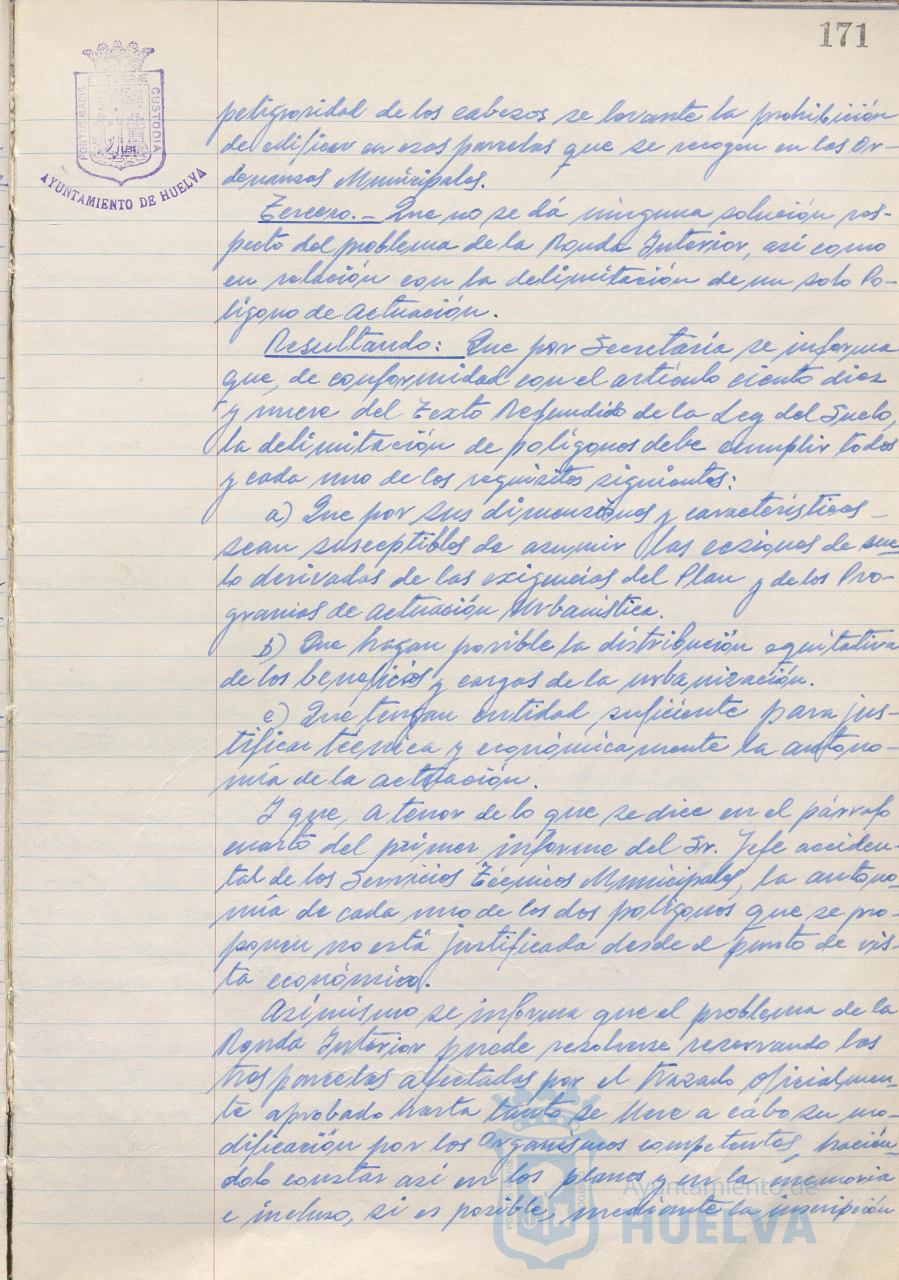 171
PORTUS MARIS
ET TERRAE
CUSTODIA
AYUNTAMIENTO DE HUELVA
peligrosidad de los cabezos se levante la prohibición
de edificar en esas parcelas que se recogen en las Or-
denanzas Municipales.
Tercero.- Que no se dá ninguna solución res-
pecto del problema de la Ronda Interior, así como
en relación con la delimitación de un solo Po-
lígono de Actuación.
Resultando: Que por Secretaría se informa
que, de conformidad con el artículo ciento diez
y nueve del Texto Refundido de la Ley del Suelo,
la delimitación de polígonos debe cumplir todos
y cada uno de los requisitos siguientes:
a) Que por sus dimensiones y características -
sean susceptibles de asumir las cesiones de sue-
lo derivadas de las exigencias del Plan y de los Pro-
gramas de Actuación Urbanística.
b) Que hagan posible la distribución equitativa
de los beneficios y cargas de la urbanización.
c) Que tengan entidad suficiente para jus-
tificar técnica y económicamente la autono-
mía de la actuación.
Y que, a tenor de lo que se dice en el párrafo
cuarto del primer informe del Sr. Jefe acciden-
tal de los Servicios Técnicos Municipales, la autono-
mía de cada uno de los dos polígonos que se pro-
ponen no está justificada desde el punto de vis-
ta económico.
Asímismo se informa que el problema de la
Ronda Interior puede resolverse reservando las
tres parcelas afectadas por el trazado oficialmen-
te aprobado hasta tanto se lleve a cabo su mo-
dificación por los Organismos competentes, hacién-
dolo constar así en los planos y en la memoria
e incluso, si es posible, mediante la inscripción
Ayuntamiento de
HUELVA